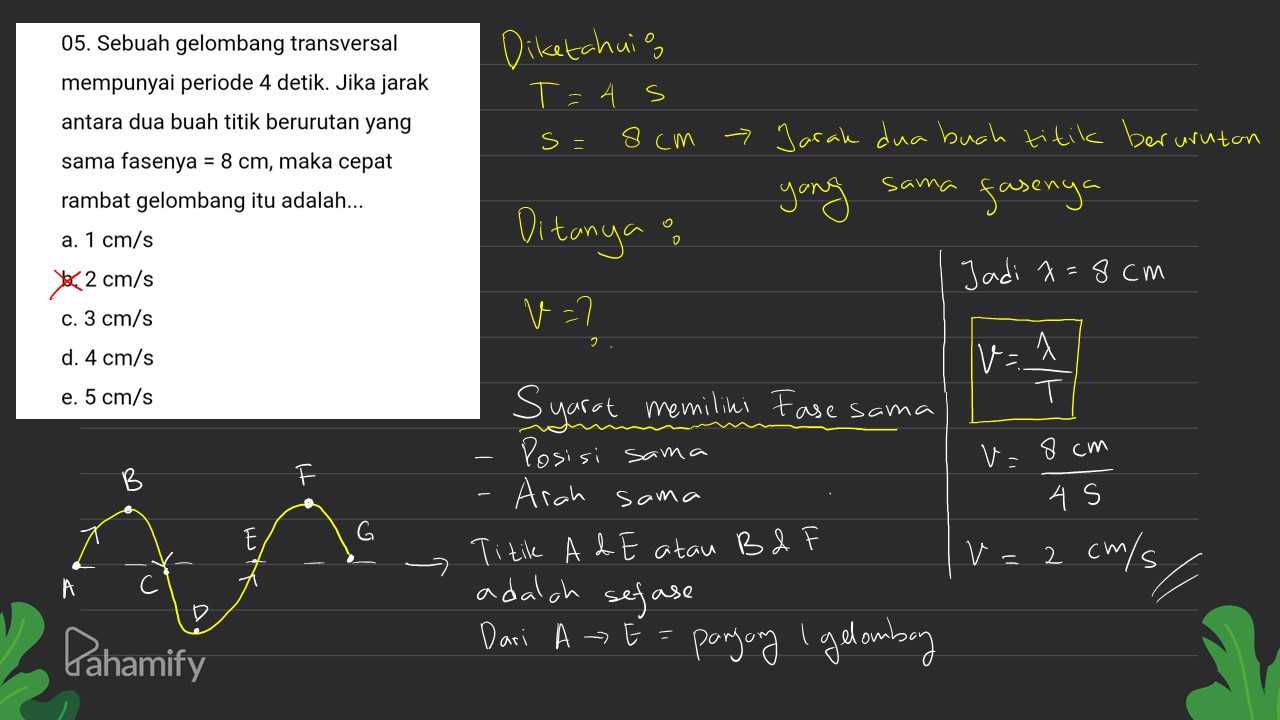 05. Sebuah gelombang transversal
mempunyai periode 4 detik. Jika jarak
antara dua buah titik berurutan yang
sama fasenya = 8 cm, maka cepat
rambat gelombang itu adalah...
a. 1 cm/s
b. 2 cm/s
c. 3 cm/s
d. 4 cm/s
e. 5 cm/s
Diketahui :
T = 4 s
S = 8 cm → Jarak dua buah titik berurutan
yang sama fasenya
Ditanya :
V = ?
Syarat memiliki Fase sama
- Posisi sama
- Arah sama
→ Titik A & E atau B & F
adalah sefase
Dari A → E = panjang 1 gelombang
Jadi λ = 8 cm
V = λ / T
V = 8 cm / 4 S
V = 2 cm/s
A
B
C
D
E
F
G
Pahamify